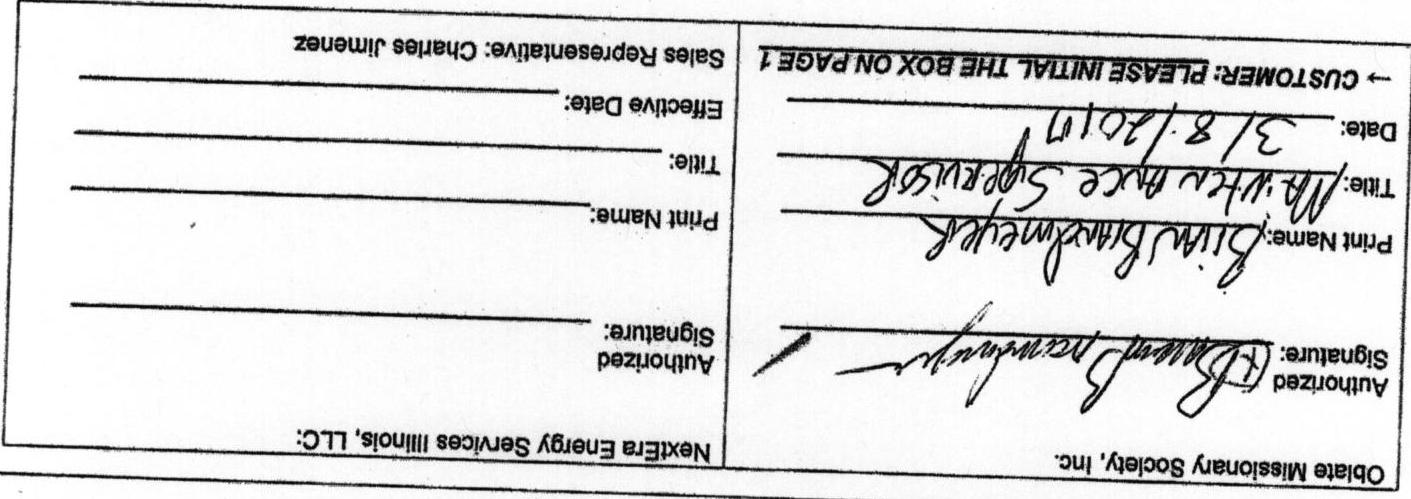 Oblate Missionary Society, Inc.
Authorized
Signature:
Print Name: Brian Brandmeyer
Title: Maintenance Supervisor
Date: 3/8/2017
→ CUSTOMER: PLEASE INITIAL THE BOX ON PAGE 1
NextEra Energy Services Illinois, LLC:
Authorized
Signature:
Print Name:
Title:
Effective Date:
Sales Representative: Charles Jimenez